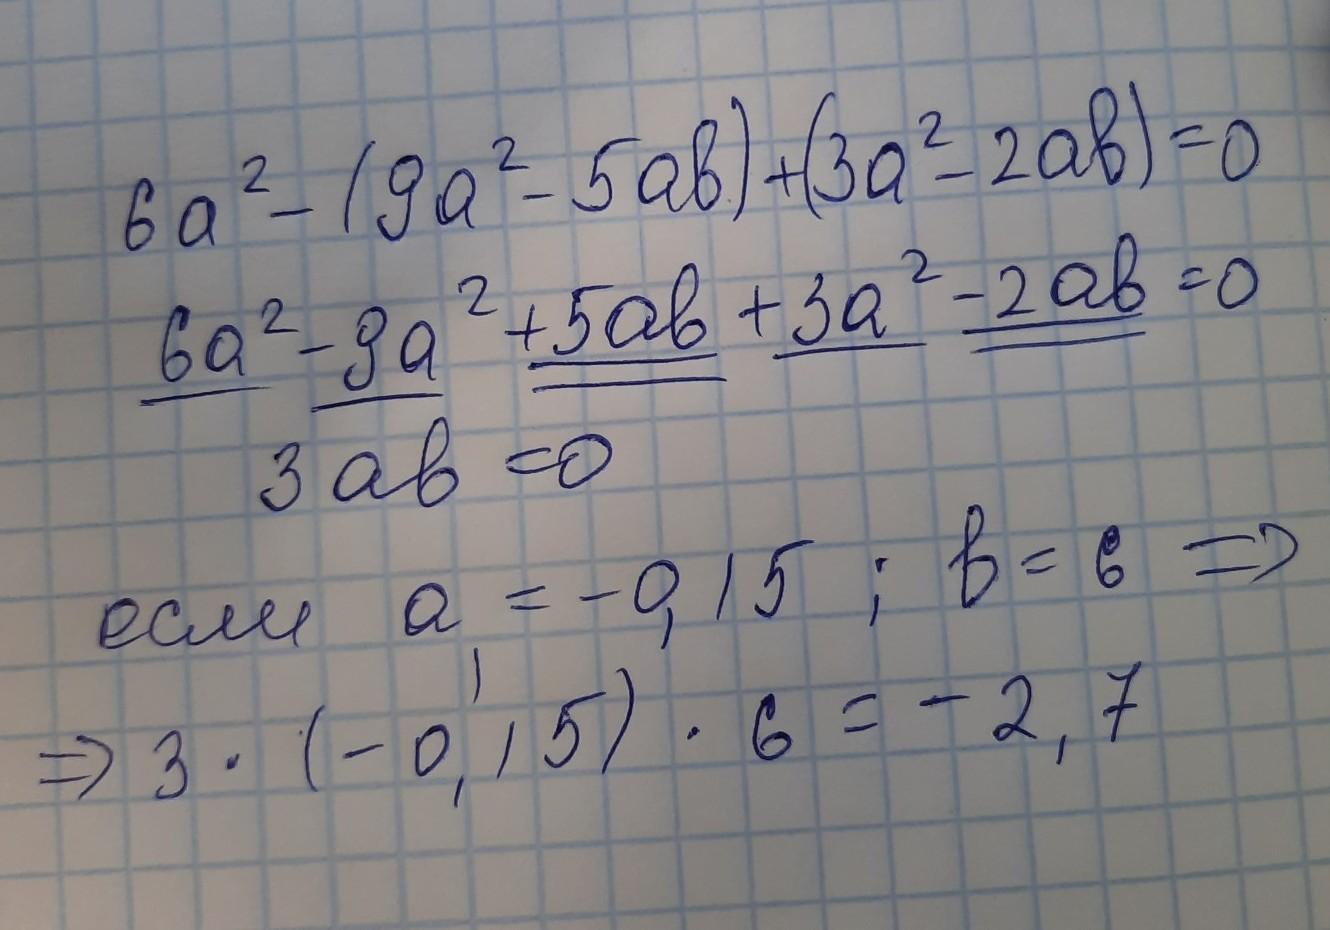 6a² - (9a² - 5ab) + (3a² - 2ab) = 0
6a² - 9a² + 5ab + 3a² - 2ab = 0
3ab = 0
если a = -0,15 ; b = 6 =>
=> 3 · (-0,15) · 6 = -2,7